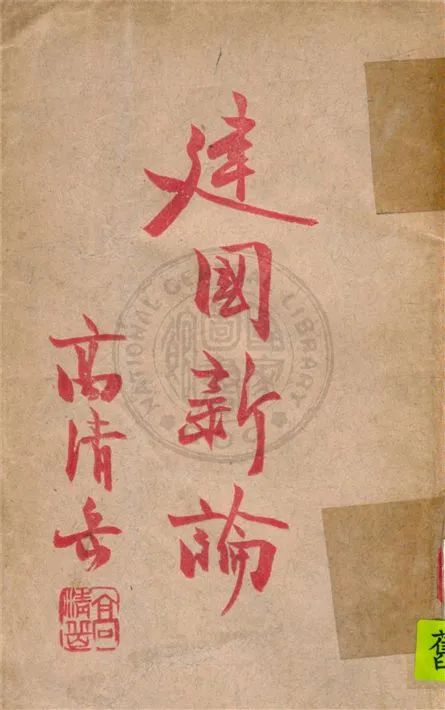 建國新論
高清岳
高清岳
NATIONAL CENTRAL LIBRARY
舊